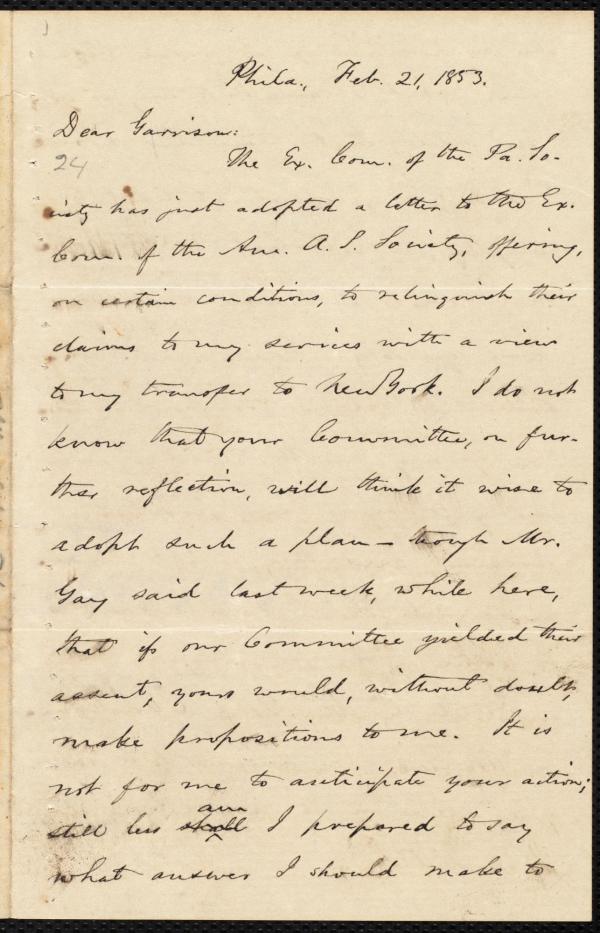 Phila., Feb. 21, 1853.
Dear Garrison:
24
The Ex. Com. of the Pa. So-
ciety has just adopted a letter to the Ex.
Com. of the Am. A. S. Society, offering,
on certain conditions, to relinquish their
claims to my services with a view
to my transfer to New York. I do not
know that your Committee, on fur-
ther reflection, will think it wise to
adopt such a plan — though Mr.
Gay said last week, while here,
that if our Committee yielded their
assent, yours would, without doubt,
make propositions to me. It is
not for me to anticipate your action;
am
still less shall I prepared to say
what answer I should make to